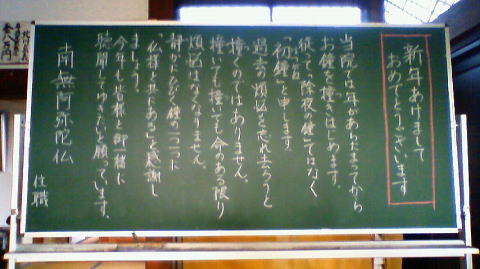 新年あけまして
おめでとうございます
当院では年があらたまってから
お鐘を撞きはじめます。
従って、除夜の鐘ではなく
「初鐘」と申します。
過去の煩悩を忘れ去ろうと
撞くのではありません。
撞いても撞いても命のある限り
煩悩はなくなりません。
静かにひびく鐘一つ一つに
「仏様と共にあること」感謝し
ましょう。
今年も皆様と御一緒に
聴聞してゆきたいと願っています。
南無阿弥陀仏
住職